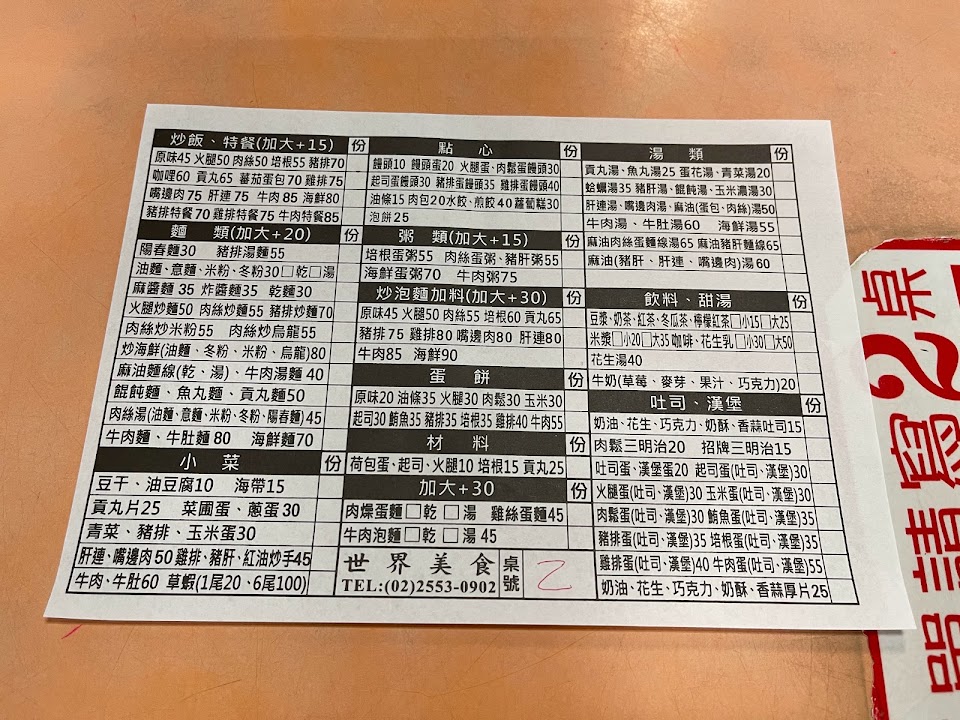 炒飯、特餐(加大+15) 份
原味45 火腿50 肉絲50 培根55 豬排70
咖哩60 貢丸65 蕃茄蛋包70 雞排75
嘴邊肉75 肝連75 牛肉85 海鮮80
豬排特餐70 雞排特餐75 牛肉特餐85
麵 類(加大+20) 份
陽春麵30 豬排湯麵55
油麵、意麵、米粉、冬粉30□乾□湯
麻醬麵35 炸醬麵35 乾麵30
火腿炒麵50 肉絲炒麵55 豬排炒麵70
肉絲炒米粉55 肉絲炒烏龍55
炒海鮮(油麵、冬粉、米粉、烏龍)80
麻油麵線(乾、湯)、牛肉湯麵40
餛飩麵、魚丸麵、貢丸麵50
肉絲湯(油麵、意麵、米粉、冬粉、陽春麵)45
牛肉麵、牛肚麵80 海鮮麵70
小 菜 份
豆干、油豆腐10 海帶15
貢丸片25 菜圃蛋、蔥蛋30
青菜、豬排、玉米蛋30
肝連、嘴邊肉50 雞排、豬肝、紅油炒手45
牛肉、牛肚60 草蝦(1尾20、6尾100)
點 心 份
饅頭10 饅頭蛋20 火腿蛋、肉鬆蛋饅頭30
起司蛋饅頭30 豬排蛋饅頭35 雞排蛋饅頭40
油條15 肉包20 水餃、煎餃40 蘿蔔糕30
泡餅25
粥 類(加大+15) 份
培根蛋粥55 肉絲蛋粥、豬肝粥55
海鮮蛋粥70 牛肉粥75
炒泡麵加料(加大+30) 份
原味45 火腿50 肉絲55 培根60 貢丸65
豬排75 雞排80 嘴邊肉80 肝連80
牛肉85 海鮮90
蛋 餅 份
原味20 油條35 火腿30 肉鬆30 玉米30
起司30 鮪魚35 豬排35 培根35 雞排40 牛肉55
材 料 份
荷包蛋、起司、火腿10 培根15 貢丸25
加大+30 份
肉燥蛋麵□乾□湯 雞絲蛋麵45
牛肉泡麵□乾□湯 45
世界美食
TEL:(02)2553-0902
桌號 2
湯 類 份
貢丸湯、魚丸湯25 蛋花湯、青菜湯20
蛤蠣湯35 豬肝湯、餛飩湯、玉米濃湯30
肝連湯、嘴邊肉湯、麻油(蛋包、肉絲)湯50
牛肉湯、牛肚湯60 海鮮湯55
麻油肉絲蛋麵線湯65 麻油豬肝麵線65
麻油(豬肝、肝連、嘴邊肉)湯60
飲料、甜湯 份
豆漿、奶茶、紅茶、冬瓜茶、檸檬紅茶□小15□大25
米漿□小20□大35 咖啡、花生乳□小30□大50
花生湯40
牛奶(草莓、麥芽、果汁、巧克力)20
吐司、漢堡 份
奶油、花生、巧克力、奶酥、香蒜吐司15
肉鬆三明治20 招牌三明治15
吐司蛋、漢堡蛋20 起司蛋(吐司、漢堡)30
火腿蛋(吐司、漢堡)30 玉米蛋(吐司、漢堡)30
肉鬆蛋(吐司、漢堡)30 鮪魚蛋(吐司、漢堡)30
豬排蛋(吐司、漢堡)35 培根蛋(吐司、漢堡)35
雞排蛋(吐司、漢堡)40 牛肉蛋(吐司、漢堡)55
奶油、花生、巧克力、奶酥、香蒜厚片25
桌2
單請寫